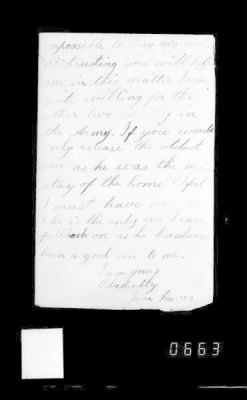 impossible to pay my
trusting you will help
me in this matter I am
quite willing for the
other two to stay in
the Army. If you would
only release the oldest
son as he was the
stay of the home
I must have
he is the only one I can
on as he has always
been a good son to me.
I am yours
Obediently
0663